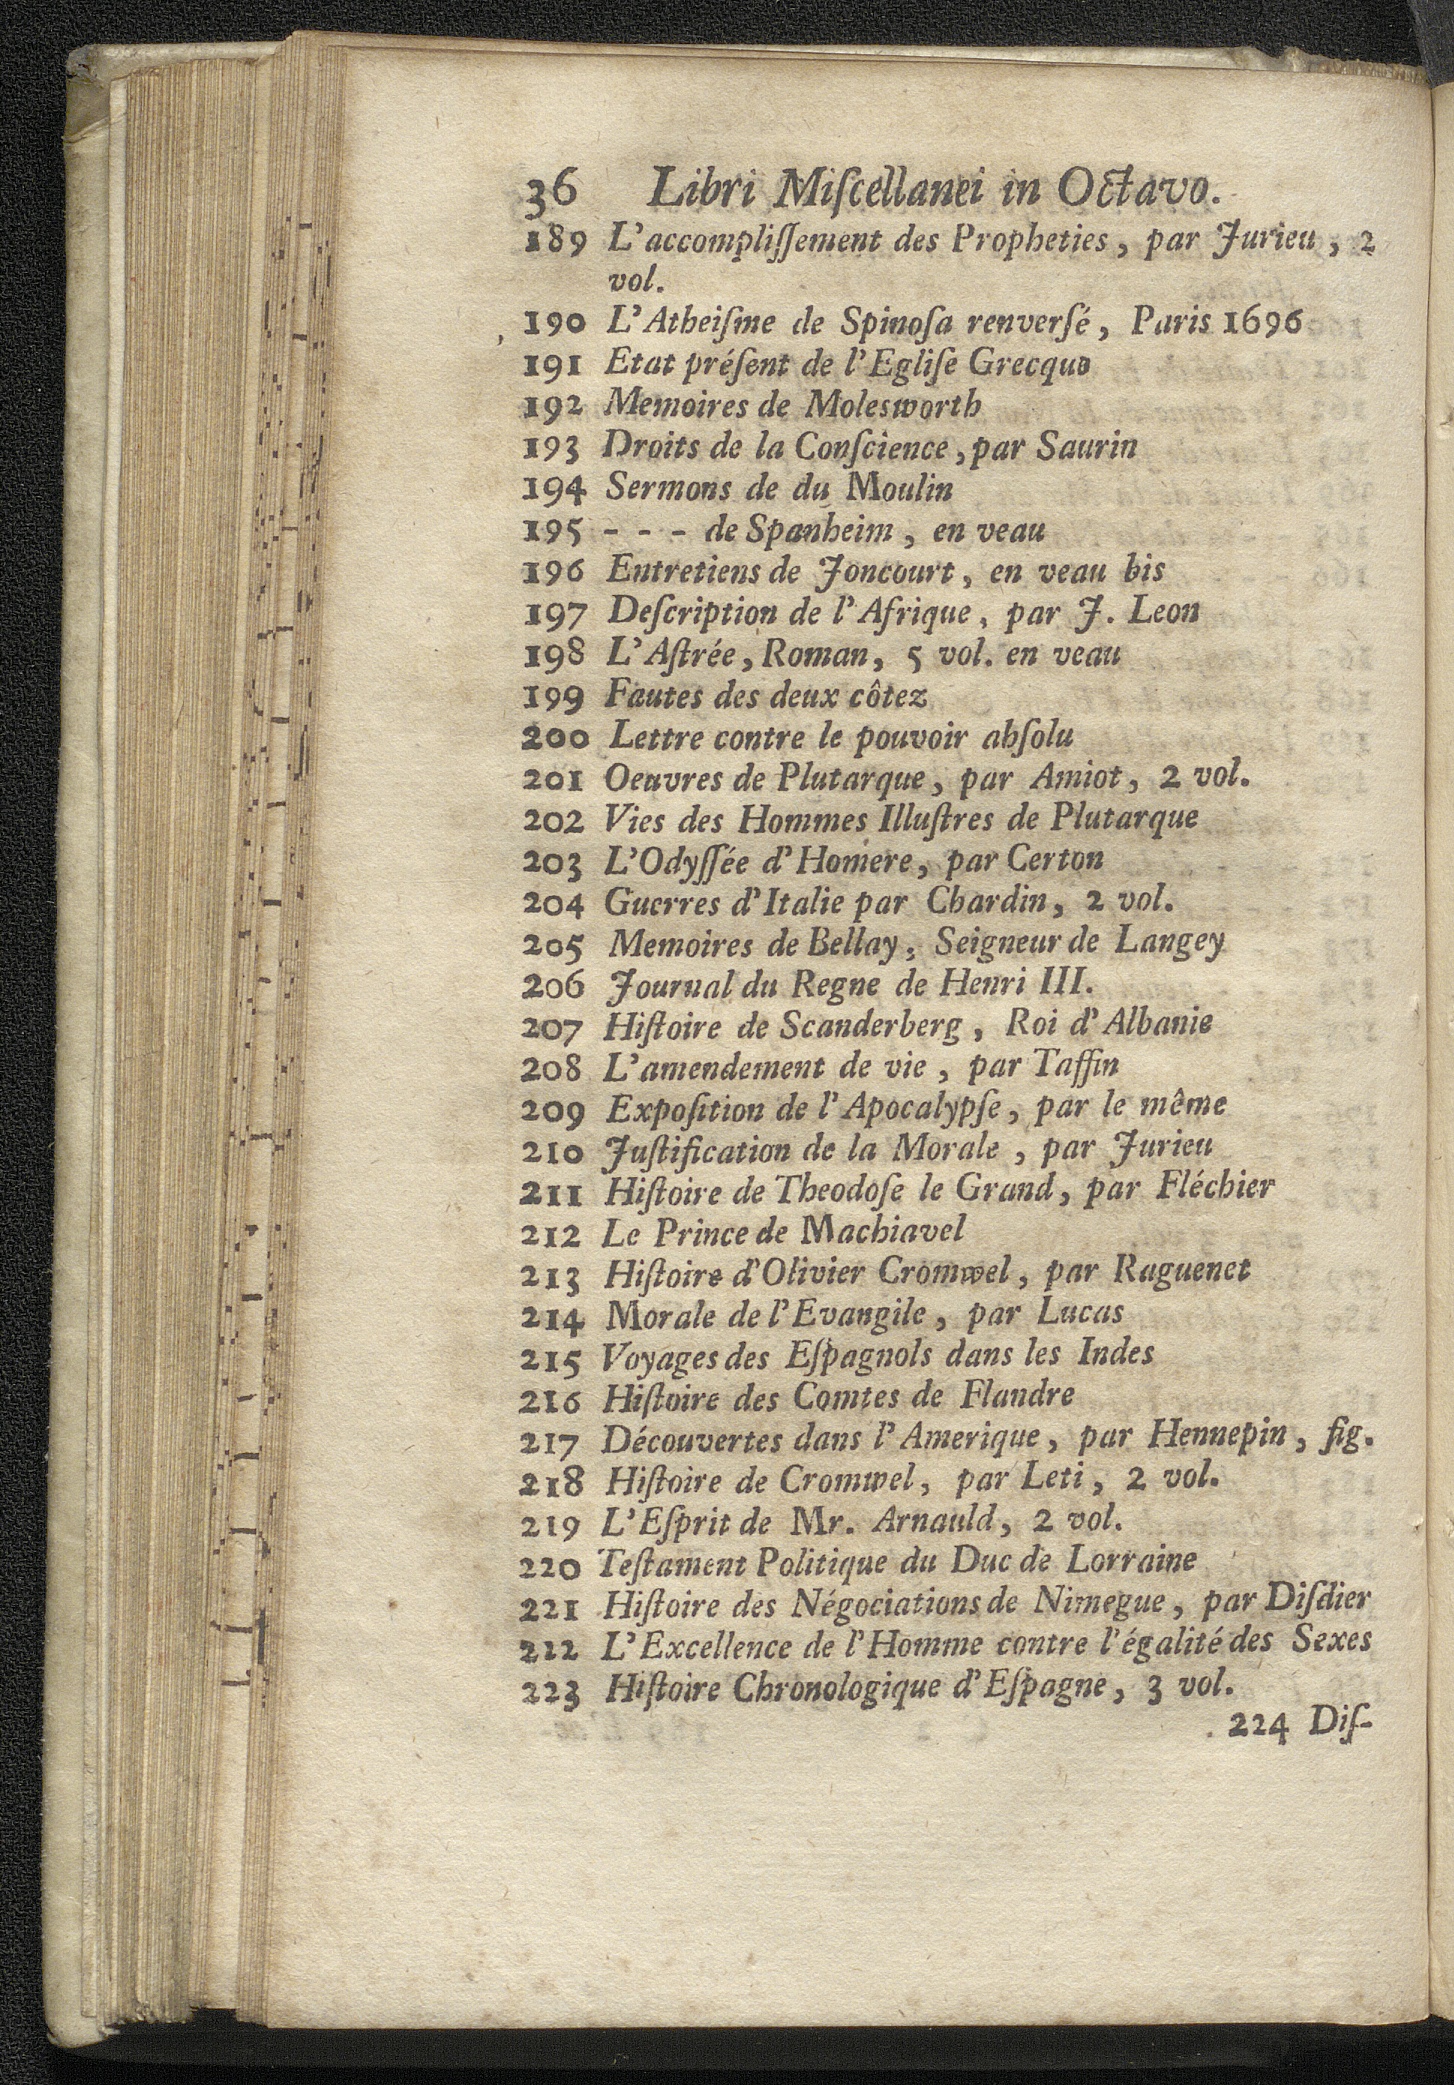 36 Libri Miſcellanei in Octavo.
189 L'accompliſſement des Propheties, par Jurieu, 2
vol.
190 L'Atheiſme de Spinoſa renverſé, Paris 1696
191 Etat préſent de l'Egliſe Grecque
192 Memoires de Molesworth
193 Droits de la Conſcience, par Saurin
194 Sermons de du Moulin
195 - - - de Spanheim, en veau
196 Entretiens de Joncourt, en veau bis
197 Deſcription de l'Afrique, par J. Leon
198 L'Aſtrée, Roman, 5 vol. en veau
199 Fautes des deux côtez
200 Lettre contre le pouvoir abſolu
201 Oeuvres de Plutarque, par Amiot, 2 vol.
202 Vies des Hommes Illuſtres de Plutarque
203 L'Odyſſée d'Homere, par Certon
204 Guerres d'Italie par Chardin, 2 vol.
205 Memoires de Bellay, Seigneur de Langey
206 Journal du Regne de Henri III.
207 Hiſtoire de Scanderberg, Roi d'Albanie
208 L'amendement de vie, par Taffin
209 Expoſition de l'Apocalypſe, par le même
210 Juſtification de la Morale, par Jurieu
211 Hiſtoire de Theodoſe le Grand, par Fléchier
212 Le Prince de Machiavel
213 Hiſtoire d'Olivier Cromwel, par Raguenet
214 Morale de l'Evangile, par Lucas
215 Voyages des Eſpagnols dans les Indes
216 Hiſtoire des Comtes de Flandre
217 Découvertes dans l'Amerique, par Hennepin, fig.
218 Hiſtoire de Cromwel, par Leti, 2 vol.
219 L'Eſprit de Mr. Arnauld, 2 vol.
220 Teſtament Politique du Duc de Lorraine
221 Hiſtoire des Négociations de Nimegue, par Diſdier
222 L'Excellence de l'Homme contre l'égalité des Sexes
223 Hiſtoire Chronologique d'Eſpagne, 3 vol.
224 Diſ-